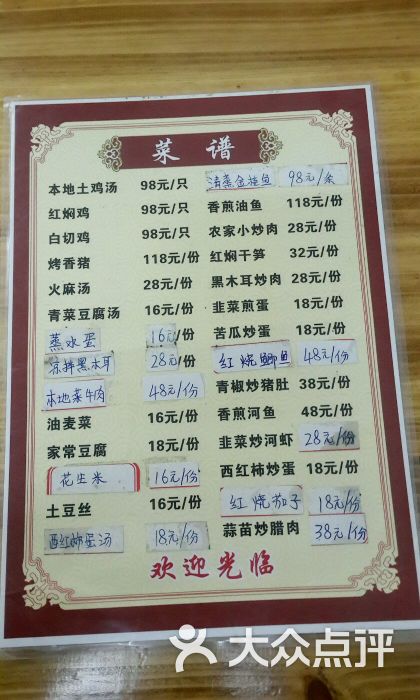 菜谱
本地土鸡汤 98元/只
红焖鸡 98元/只
白切鸡 98元/只
烤香猪 118元/份
火麻汤 28元/份
青菜豆腐汤 16元/份
蒸水蛋 16元/份
凉拌黑木耳 28元/份
本地菜牛肉 48元/份
油麦菜 16元/份
家常豆腐 18元/份
花生米 16元/份
土豆丝 16元/份
西红柿蛋汤 18元/份
清蒸金桂鱼 98元/条
香煎油鱼 118元/份
农家小炒肉 28元/份
红焖干笋 32元/份
黑木耳炒肉 28元/份
韭菜煎蛋 18元/份
苦瓜炒蛋 18元/份
红烧鲫鱼 48元/份
青椒炒猪肚 38元/份
香煎河鱼 48元/份
韭菜炒河虾 28元/份
西红柿炒蛋 18元/份
红烧茄子 18元/份
蒜苗炒腊肉 38元/份
欢迎光临
大众点评